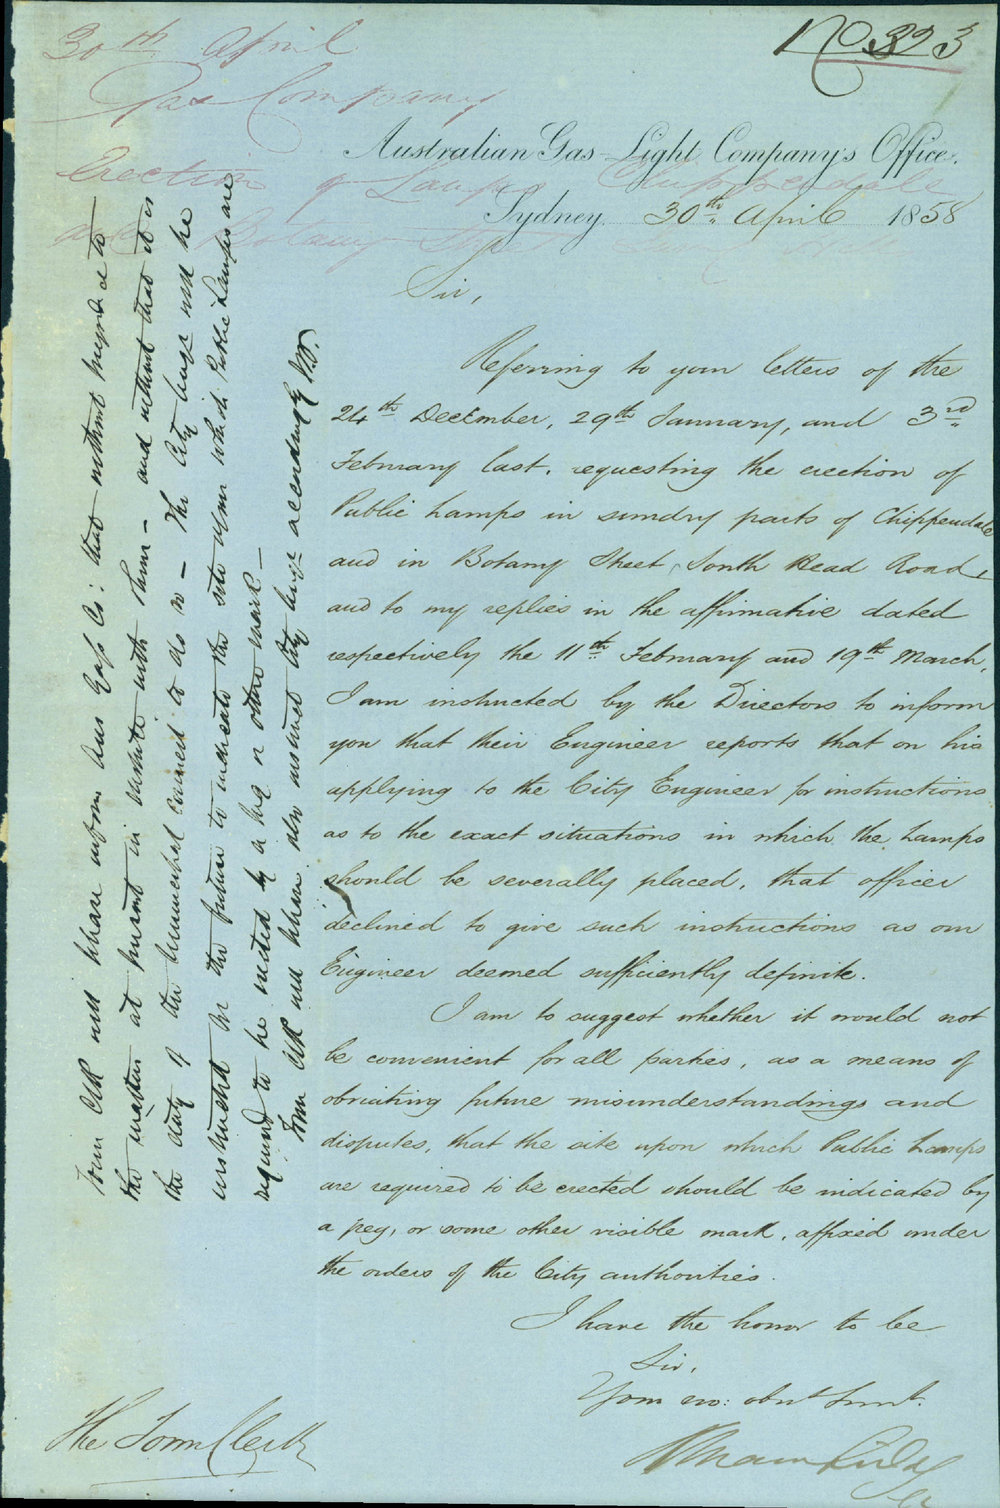 No. 323
30th April
Gas Company
Erection of Lamps Chippendale
and Botany Street
Australian Gas-Light Company's Office.
Sydney. 30th April 1858
Sir,
Referring to your letters of the
24th December, 29th January, and 3rd
February last, requesting the erection of
Public Lamps in sundry parts of Chippendale
and in Botany Street, South Head Road,
and to my replies in the affirmative dated
respectively the 11th February and 19th March,
I am instructed by the Directors to inform
you that their Engineer reports that on his
applying to the City Engineer for instructions
as to the exact situations in which the Lamps
should be severally placed, that officer
declined to give such instructions as our
Engineer deemed sufficiently definite.
I am to suggest whether it would not
be convenient for all parties, as a means of
obviating future misunderstandings and
disputes, that the site upon which Public Lamps
are required to be erected should be indicated by
a peg, or some other visible mark, affixed under
the orders of the City authorities.
I have the honor to be
Sir,
Your mo: obnt Servt.
The Town Clerk
Town Clk will please inform Aus Gass Co: that without prejudice to
the matters at present in dispute with them - and without that it is
the duty of the Municipal Council to do so - The City Engr will be
instructed for the future to indicate the site upon which Public Lamps are
required to be erected by a peg or other mark -
Town Clk will please also instruct City Engr accordingly